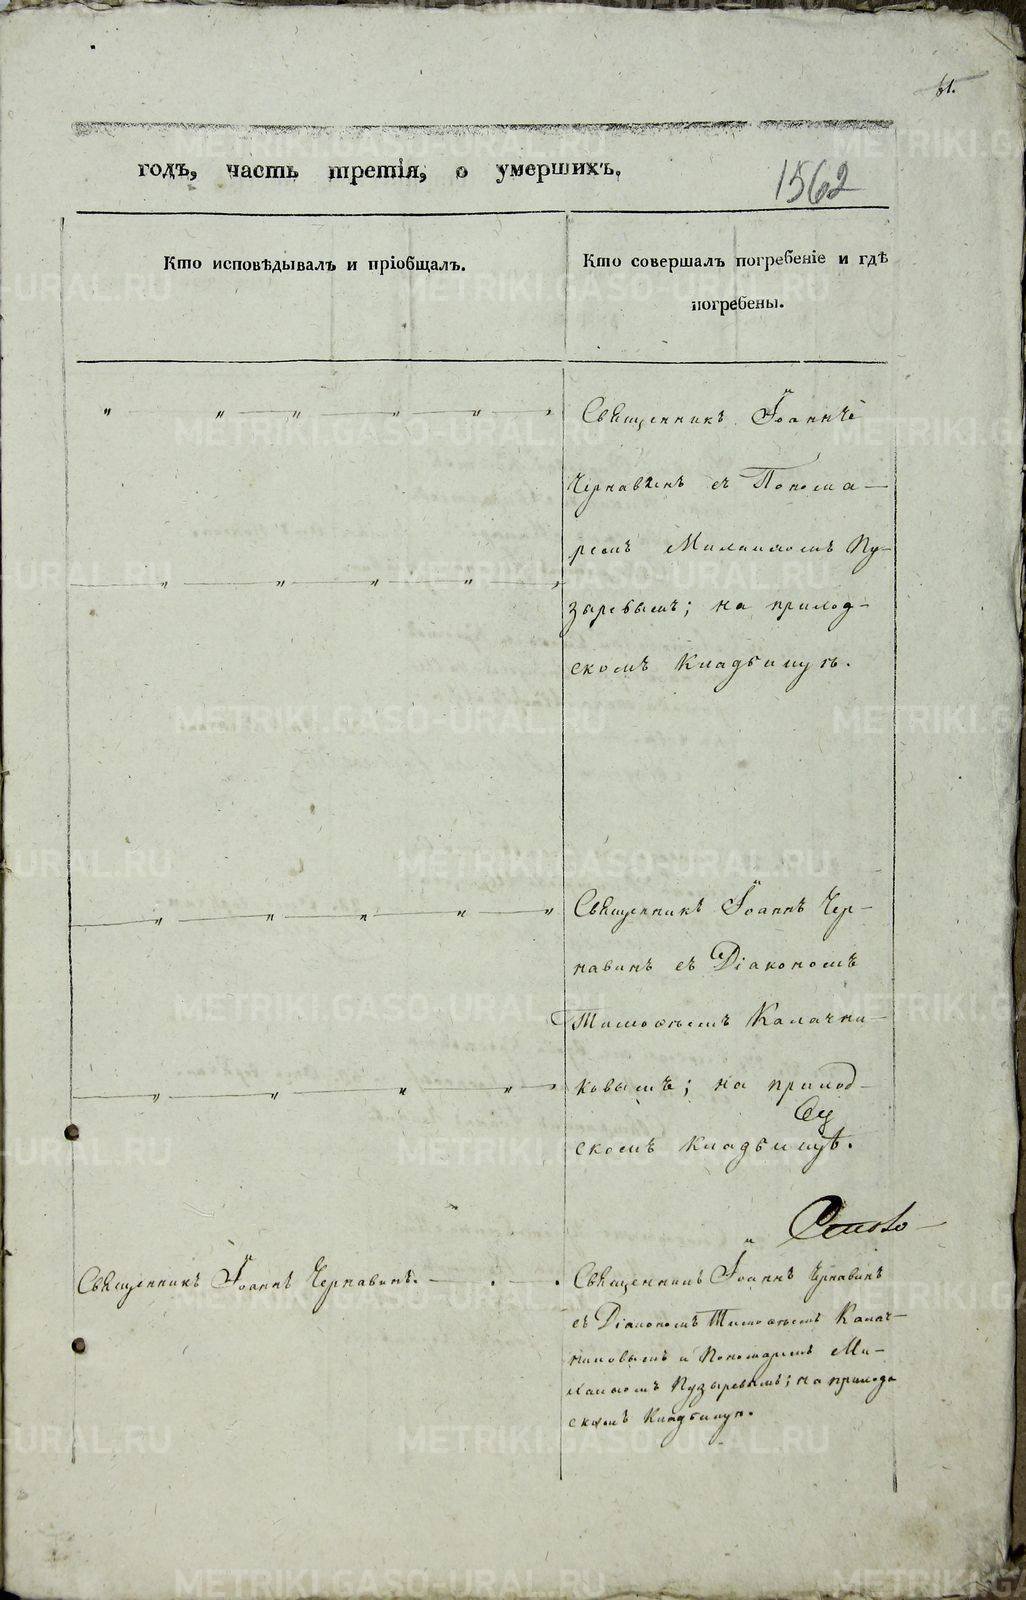 61.
годъ, часть третія, о умершихъ.
1562
Кто исповѣдывалъ и пріобщалъ.
Кто совершалъ погребеніе и гдѣ
погребены.
Священникъ Іоаннъ
Чернавинъ съ Понома-
ремъ Михаиломъ Пу-
зыревымъ; на приход-
скомъ кладбищѣ.
Священникъ Іоаннъ Чер-
навинъ съ Діакономъ
Тимоѳеемъ Калачни-
ковымъ; на приход-
скомъ кладбищѣ.
Священникъ Іоаннъ Чернавинъ.
Священникъ Іоаннъ Чернавинъ
съ Діакономъ Тимоѳеемъ Калач-
никовымъ и Пономаремъ Ми-
хаиломъ Пузыревымъ; на приход
скомъ кладбищѣ.
METRIKI.GASO-URAL.RU